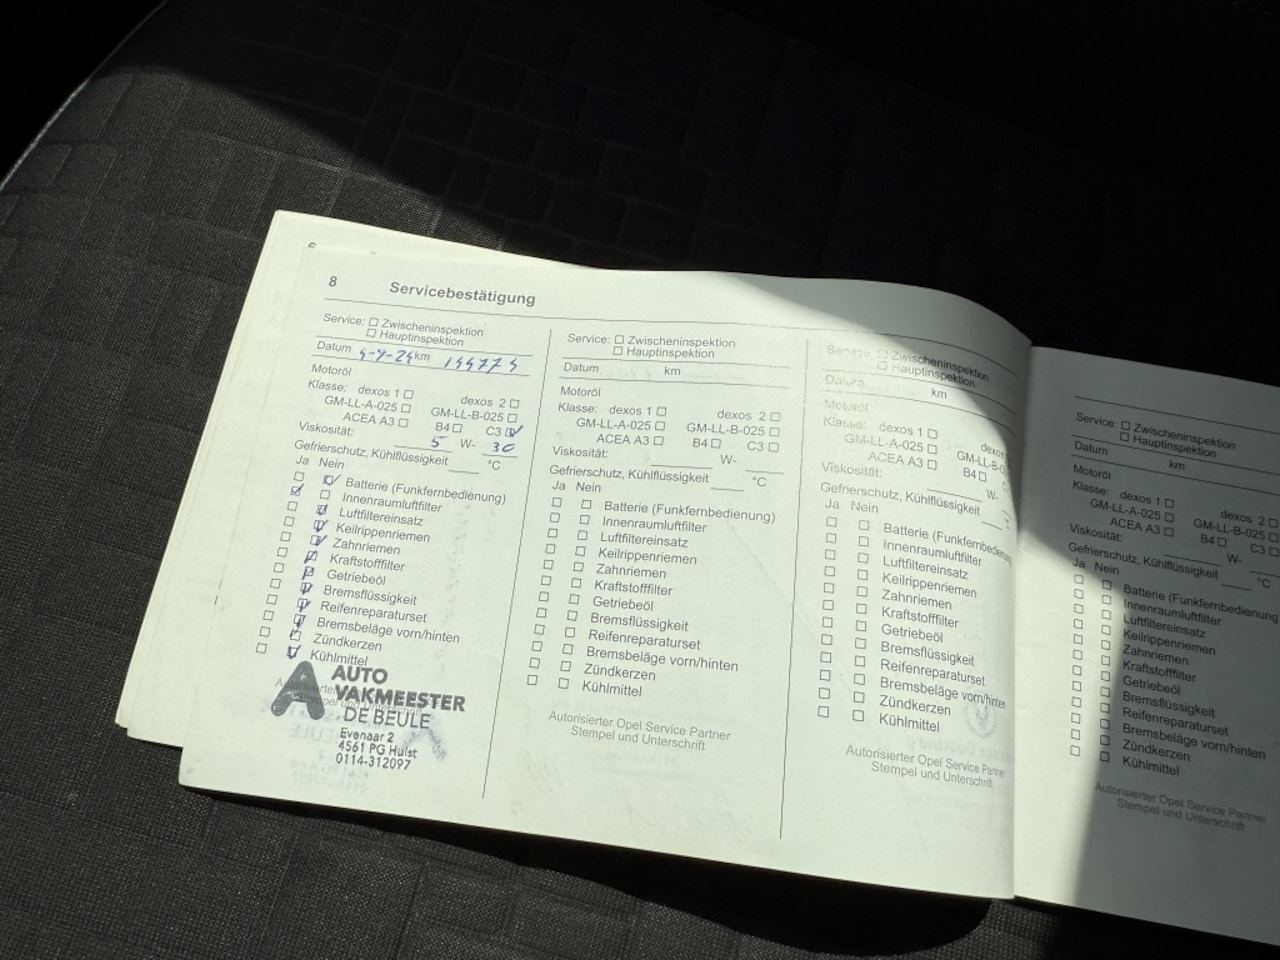 8 Servicebestätigung
Service: ☐ Zwischeninspektion
☐ Hauptinspektion
Datum 4-9-24 km 144773
Motoröl
Klasse: dexos 1 ☐ dexos 2 ☐
GM-LL-A-025 ☐ GM-LL-B-025 ☐
ACEA A3 ☐ B4 ☐ C3 ☑
Viskosität: 5 W- 30
Gefrierschutz, Kühlflüssigkeit °C
Ja Nein
☐ ☑ Batterie (Funkfernbedienung)
☑ ☐ Innenraumluftfilter
☐ ☑ Luftfiltereinsatz
☐ ☑ Keilrippenriemen
☐ ☑ Zahnriemen
☐ ☑ Kraftstofffilter
☐ ☑ Getriebeöl
☐ ☑ Bremsflüssigkeit
☐ ☑ Reifenreparaturset
☐ ☑ Bremsbeläge vorn/hinten
☐ ☑ Zündkerzen
☐ ☑ Kühlmittel
AUTO
VAKMEESTER
DE BEULE
Evenaar 2
4561 PG Hulst
0114-312097
Service: ☐ Zwischeninspektion
☐ Hauptinspektion
Datum km
Motoröl
Klasse: dexos 1 ☐ dexos 2 ☐
GM-LL-A-025 ☐ GM-LL-B-025 ☐
ACEA A3 ☐ B4 ☐ C3 ☐
Viskosität: W-
Gefrierschutz, Kühlflüssigkeit °C
Ja Nein
☐ ☐ Batterie (Funkfernbedienung)
☐ ☐ Innenraumluftfilter
☐ ☐ Luftfiltereinsatz
☐ ☐ Keilrippenriemen
☐ ☐ Zahnriemen
☐ ☐ Kraftstofffilter
☐ ☐ Getriebeöl
☐ ☐ Bremsflüssigkeit
☐ ☐ Reifenreparaturset
☐ ☐ Bremsbeläge vorn/hinten
☐ ☐ Zündkerzen
☐ ☐ Kühlmittel
Autorisierter Opel Service Partner
Stempel und Unterschrift
Service: ☐ Zwischeninspektion
☐ Hauptinspektion
Datum km
Motoröl
Klasse: dexos 1 ☐ dexos
GM-LL-A-025 ☐ GM-LL-B-0
ACEA A3 ☐ B4 ☐ C
Viskosität: W-
Gefrierschutz, Kühlflüssigkeit
Ja Nein
☐ ☐ Batterie (Funkfernbedienung
☐ ☐ Innenraumluftfilter
☐ ☐ Luftfiltereinsatz
☐ ☐ Keilrippenriemen
☐ ☐ Zahnriemen
☐ ☐ Kraftstofffilter
☐ ☐ Getriebeöl
☐ ☐ Bremsflüssigkeit
☐ ☐ Reifenreparaturset
☐ ☐ Bremsbeläge vorn/hinten
☐ ☐ Zündkerzen
☐ ☐ Kühlmittel
Autorisierter Opel Service Partner
Stempel und Unterschrift
Service: ☐ Zwischeninspektion
☐ Hauptinspektion
Datum km
Motoröl
Klasse: dexos 1 ☐ dexos 2 ☐
GM-LL-A-025 ☐ GM-LL-B-025 ☐
ACEA A3 ☐ B4 ☐ C3 ☐
Viskosität: W-
Gefrierschutz, Kühlflüssigkeit °C
Ja Nein
☐ ☐ Batterie (Funkfernbedienung
☐ ☐ Innenraumluftfilter
☐ ☐ Luftfiltereinsatz
☐ ☐ Keilrippenriemen
☐ ☐ Zahnriemen
☐ ☐ Kraftstofffilter
☐ ☐ Getriebeöl
☐ ☐ Bremsflüssigkeit
☐ ☐ Reifenreparaturset
☐ ☐ Bremsbeläge vorn/hinten
☐ ☐ Zündkerzen
☐ ☐ Kühlmittel
Autorisierter Opel Service Partner
Stempel und Unterschrift